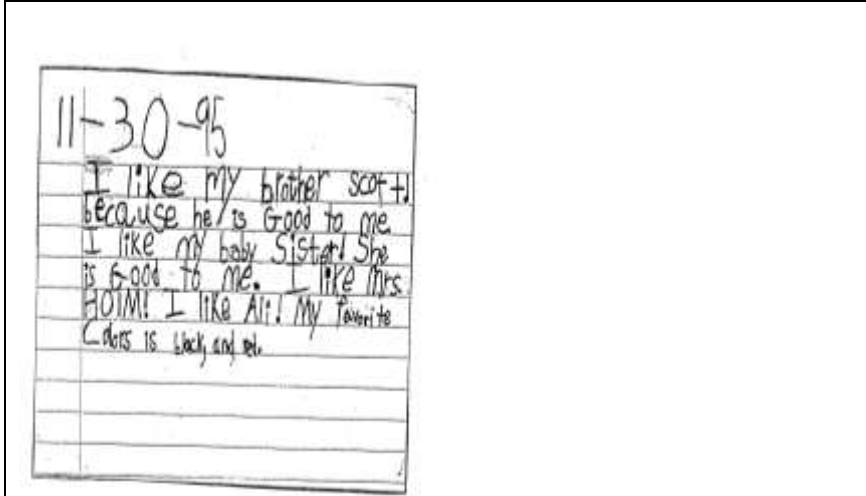 11-30-95
I like my brother scott
because he is Good to me
I like my baby Sister! She
is Good to me. I like Mrs.
HOlM! I like Ali! My favorite
Colors is black, and red.